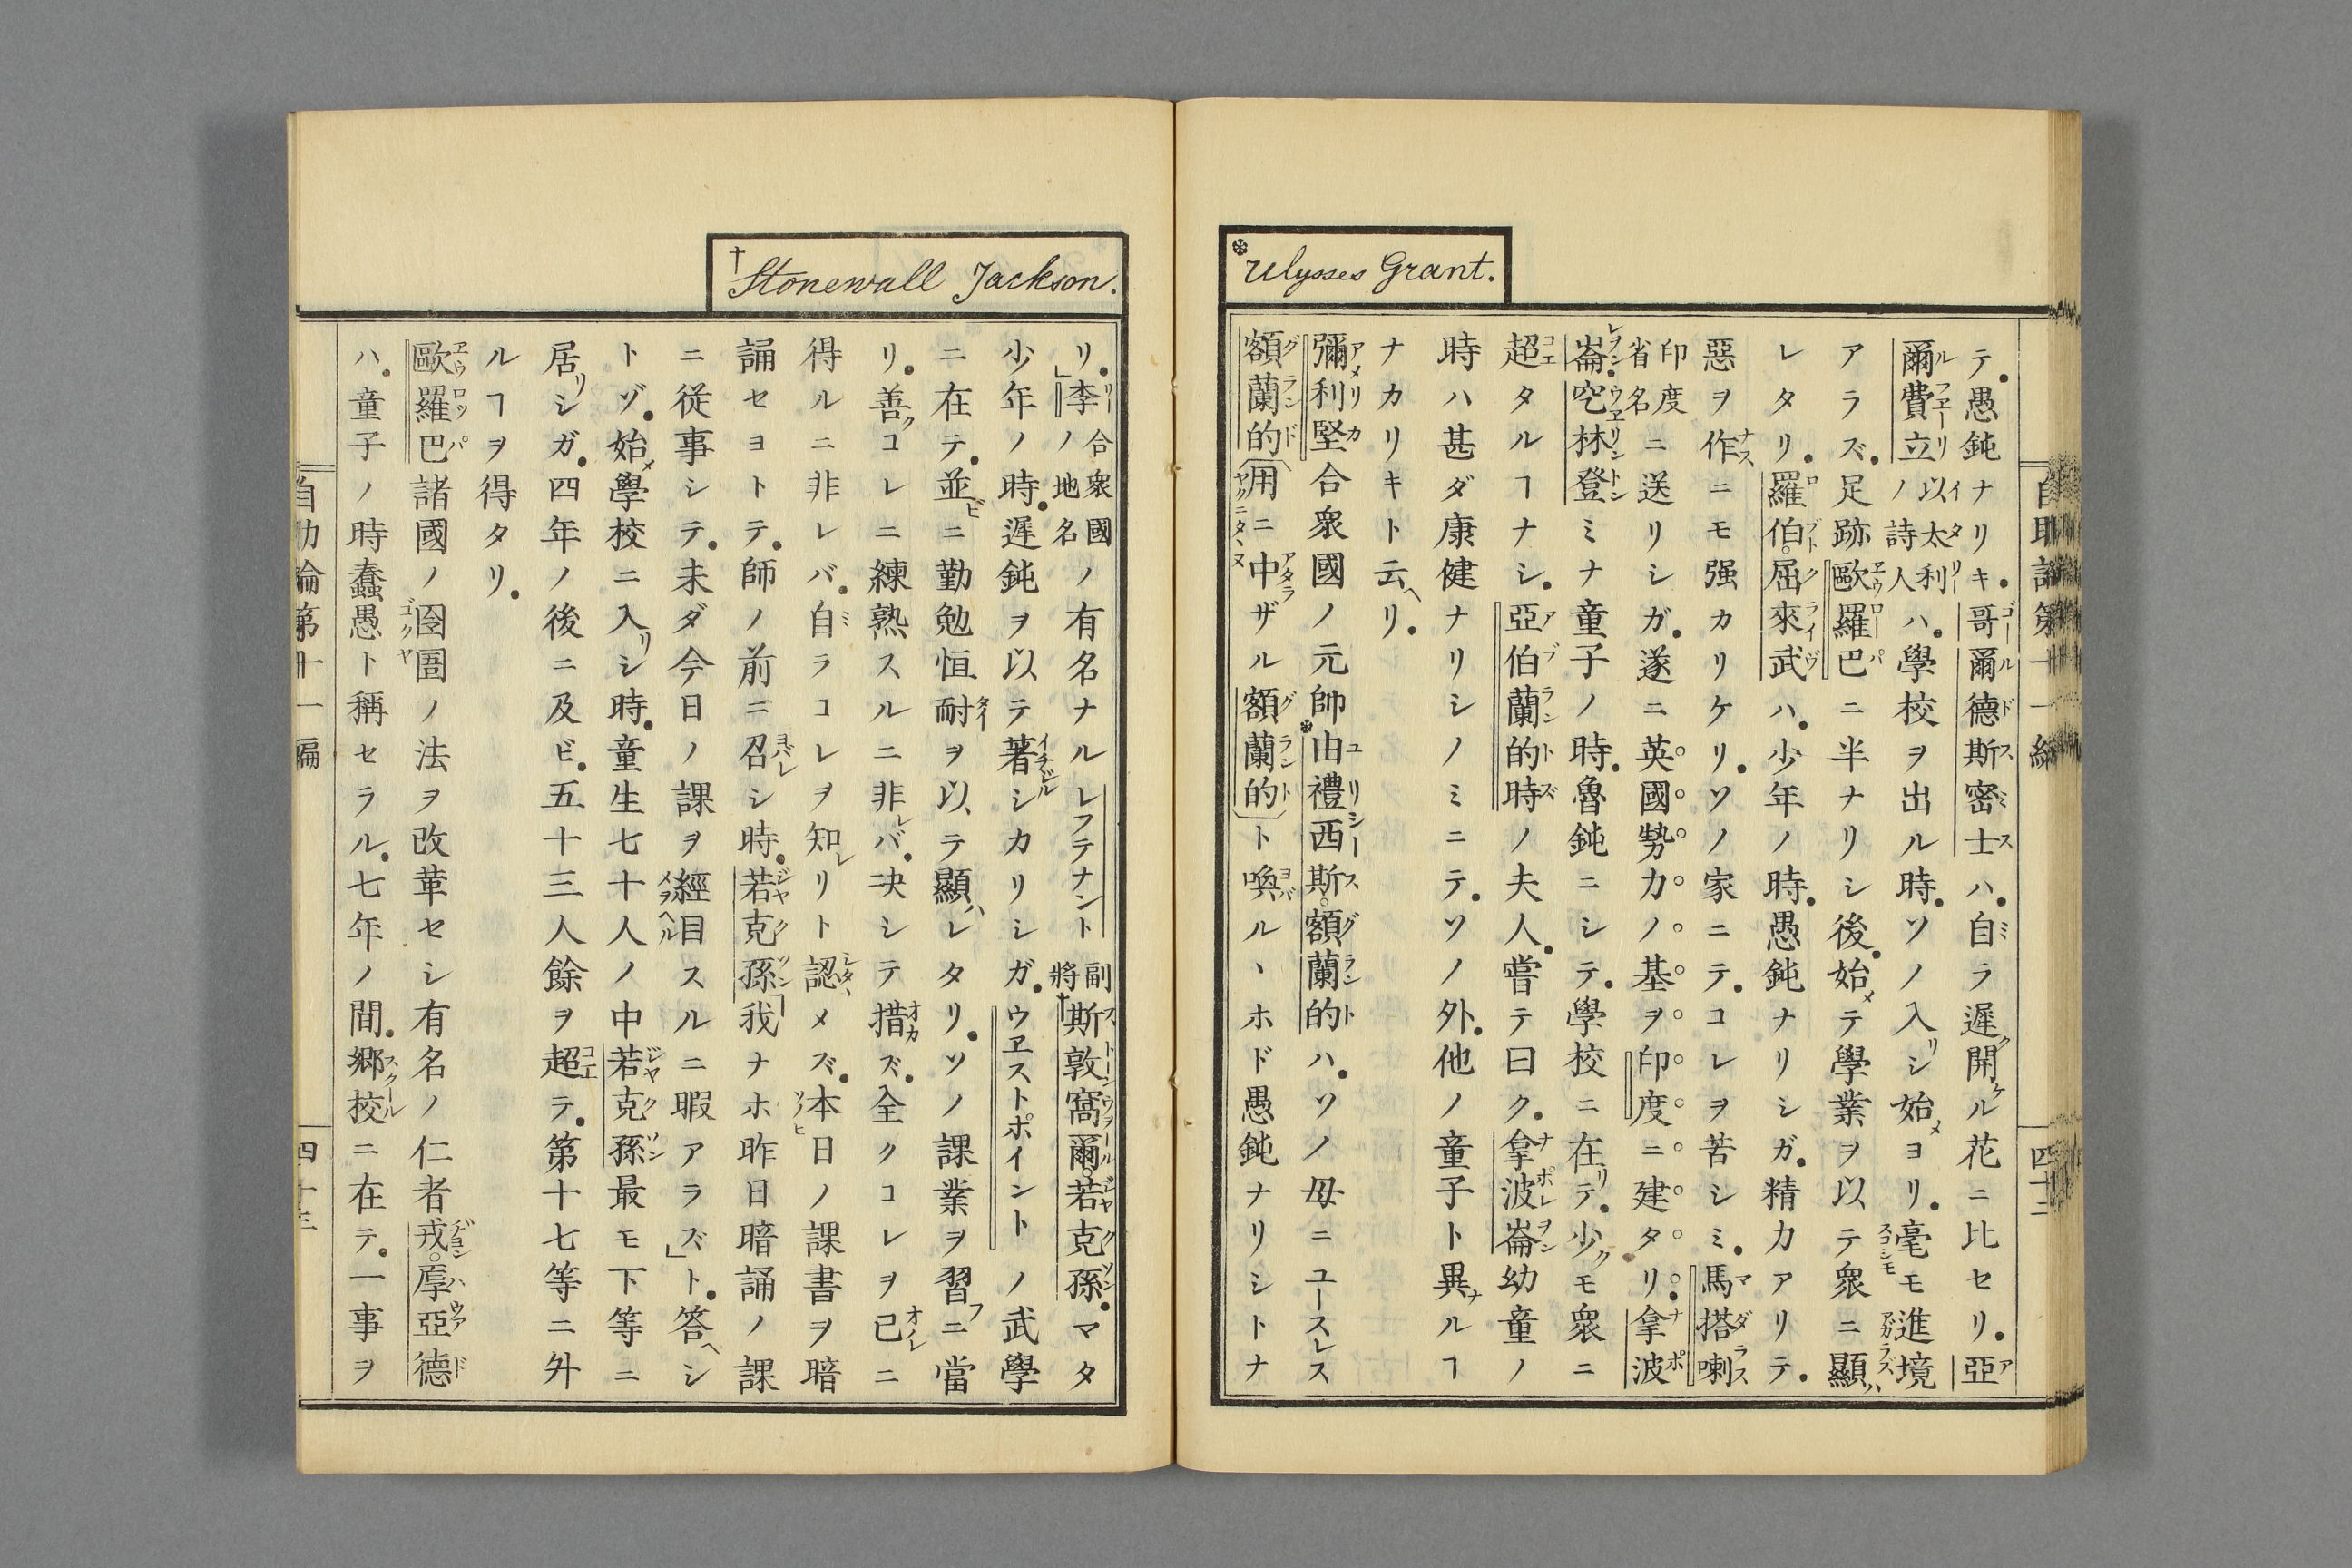 ❇Ulysses Grant.
テ。愚鈍ナリキ。哥爾德斯密士ハ。自ラ遲開ル花ニ比セリ。亞
爾費立以太利ノ詩人ハ。學校ヲ出ル時。ソノ入リシ始メヨリ。毫モ進境
アラズ。足跡歐羅巴ニ半ナリシ後。始メテ學業ヲ以テ衆ニ顯ハ
レタリ。羅伯。屈來武ハ。少年ノ時。愚鈍ナリシガ。精力アリテ。
惡ヲ作スニモ强カリケリ。ソノ家ニテ。コレヲ苦シミ。馬搭喇
印度省名ニ送リシガ。遂ニ英國勢力ノ基ヲ印度ニ建タリ。拿波
崙。空林登ミナ童子ノ時。魯鈍ニシテ。學校ニ在リテ。少クモ衆ニ
超タルヿナシ。亞伯蘭的時ノ夫人。嘗テ曰ク。拿波崙幼童ノ
時ハ甚ダ康健ナリシノミニテ。ソノ外。他ノ童子ト異ナルヿ
ナカリキト云ヘリ。
彌利堅合衆國ノ元帥❇由禮西斯。額蘭的ハ。ソノ母ニユースレス
額蘭的(用ニ中ザル額蘭的)ト喚ル丶ホド愚鈍ナリシトナ
†Stonewall Jackson.
リ。」李合衆國ノ地名ノ有名ナルレフテナント副將†斯敦窩爾。若克孫。マタ
少年ノ時。遲鈍ヲ以テ著シカリシガ。ウヱストポイントノ武學
ニ在テ。並ビニ勤勉恒耐ヲ以テ顯ハレタリ。ソノ課業ヲ習フニ當
リ。善クコレニ練熟スルニ非レバ。决シテ措ズ。全クコレヲ己ニ
得ルニ非レバ。自ラコレヲ知レリト認メズ。本日ノ課書ヲ暗
誦セヨトテ。師ノ前ニ召レシ時。若克孫「我ナホ昨日暗誦ノ課
ニ従事シテ。未ダ今日ノ課ヲ經目スルニ暇アラズ」ト。答ヘシ
トゾ。始メ學校ニ入リシ時。童生七十人ノ中若克孫最モ下等ニ
居リシガ。四年ノ後ニ及ビ。五十三人餘ヲ超テ。第十七等ニ外
ルヿヲ得タリ。
歐羅巴諸國ノ囹圄ノ法ヲ改革セシ有名ノ仁者戎。厚亞德
ハ。童子ノ時蠢愚ト稱セラル。七年ノ間。郷校ニ在テ。一事ヲ
自助論第十一編 四十三